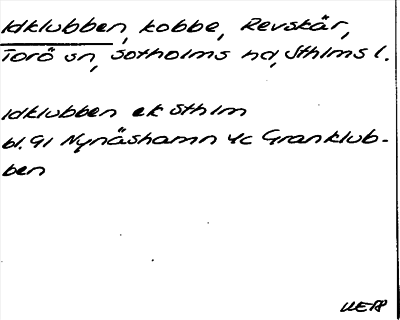 Idklubben, kobbe, Revskär,
Torö sn, Sotholms hd, Sthlms l.
Idklubben ek Sthlm
bl. 91 Nynäshamn 4c Granklub-
ben